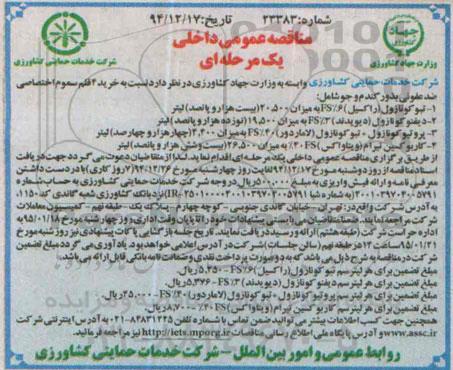 شماره: ۲۳۳۸۳ تاریخ: ۹۴/۱۲/۱۷
جهاد
وزارت جهاد کشاورزی
شرکت خدمات حمایتی کشاورزی
مناقصه عمومی داخلی
یک مرحله ای
شرکت خدمات حمایتی کشاورزی وابسته به وزارت جهاد کشاورزی در نظر دارد نسبت به خرید ۴ قلم سموم اختصاصی
ضدعفونی بذور گندم و جو شامل:
۱- تبوکونازول (راکسیل) FS۶٪ به میزان ۲۰,۵۰۰ (بیست هزار و پانصد) لیتر
۲- دیفنوکونازول (دیویدند) FS۳٪ به میزان ۱۹,۵۰۰ (نوزده هزار و پانصد) لیتر
۳- پروتیوکونازول + تبوکونازول (لاماردور) FS۴۰٪ به میزان ۴,۴۰۰ (چهار هزار و چهارصد) لیتر
۴- کاربوکسین تیرام (ویتاواکس) FS۴۰٪ به میزان ۲۶,۵۰۰ (بیست و شش هزار و پانصد) لیتر
از طریق برگزاری مناقصه عمومی داخلی یک مرحله ای اقدام نماید. لذا از متقاضیان دعوت می گردد جهت دریافت
اسناد مناقصه از روز دوشنبه مورخ ۹۴/۱۲/۱۷ لغایت روز چهارشنبه مورخ ۹۴/۱۲/۲۶ (۷ روز کاری) با در دست داشتن
معرفی نامه و ارائه فیش واریزی به مبلغ ۵۰۰,۰۰۰ ریال در وجه شرکت خدمات حمایتی کشاورزی به حساب شماره
نزد بانک کشاورزی شعبه گاندی کد ۱۱۵۰،
به آدرس شرکت واقع در: تهران – خیابان گاندی جنوبی – کوچه چهارم – پلاک یک – طبقه نهم – کمیسیون معاملات
شرکت مراجعه نمایند. ضمنا متقاضیان می بایستی پیشنهادات خود را تا پایان وقت اداری روز چهارشنبه مورخ ۹۵/۰۱/۱۸ به
اداره حراست شرکت (طبقه هشتم) ارائه و رسید دریافت نمایند. تاریخ جلسه بازگشایی پاکات پیشنهادی نیز روز شنبه مورخ
۹۵/۰۱/۲۱ ساعت ۱۳ در طبقه نهم (سالن جلسات) شرکت در آدرس اعلامی خواهد بود. یادآوری می گردد مبلغ تضمین
شرکت در مناقصه به شرح ذیل می باشد که به دو صورت پرداخت نقدی و ضمانت نامه بانکی قابل ارائه می باشد:
مبلغ تضمین برای هر لیتر سم تبوکونازول (راکسیل) FS۶٪- ۵,۲۵۰ ریال
مبلغ تضمین برای هر لیتر سم دیفنوکونازول (دیویدند) FS۳٪- ۵,۳۷۶ ریال
مبلغ تضمین برای هر لیتر سم پروتیوکونازول + تبوکونازول (لاماردور) FS۴۰٪- ۲۵,۰۰۰ ریال
مبلغ تضمین برای هر لیتر سم کاربوکسین تیرام (ویتاواکس) FS۴۰٪- ۸,۷۰۰ ریال
همچنین جهت کسب اطلاعات بیشتر می توانید ضمن تماس با شماره تلفن ۸۳۸۳۱۲۴۵-۰۲۱ به آدرس اینترنتی شرکت
www.assc.ir و آدرس پایگاه ملی اطلاع رسانی مناقصات http://iets.mporg.ir نیز مراجعه فرمائید.
روابط عمومی و امور بین الملل – شرکت خدمات حمایتی کشاورزی